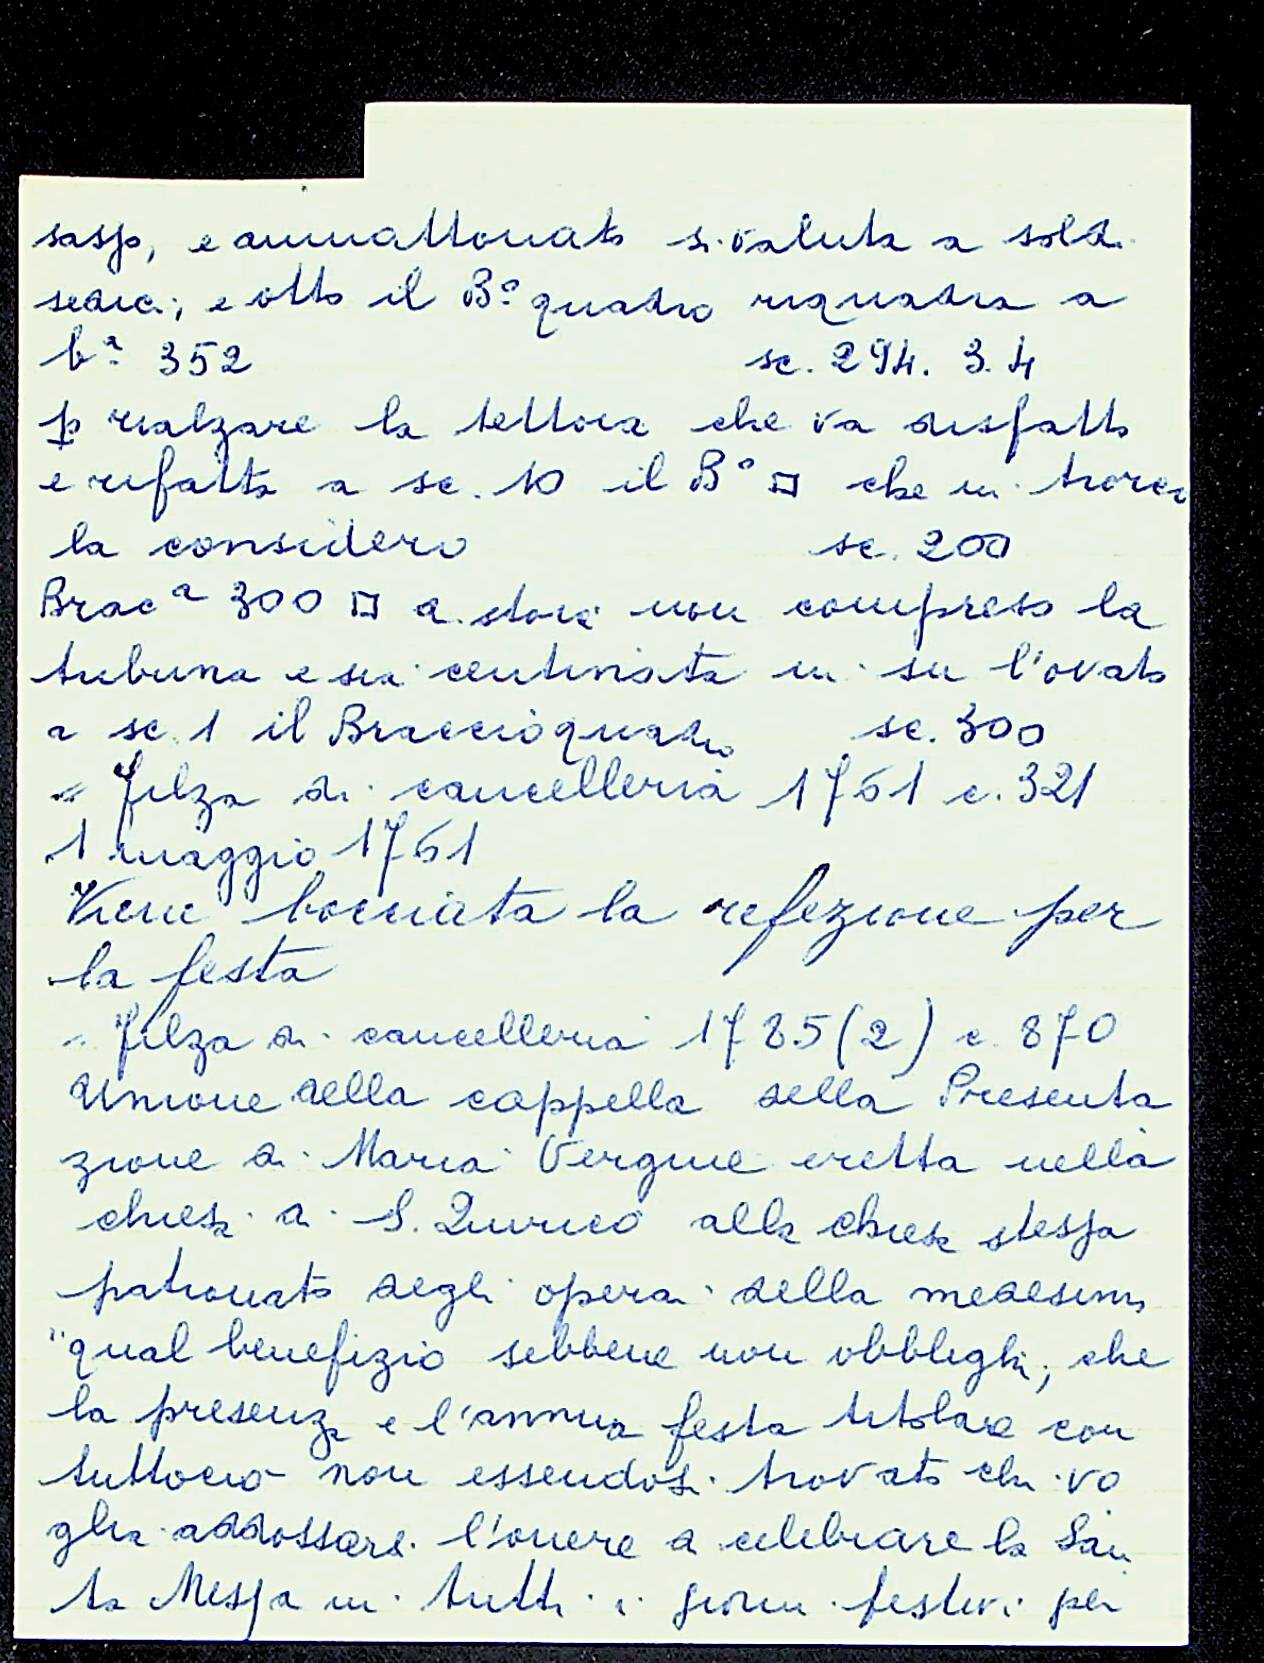 sasso, e ammattonato si valuta a soldi
sedici, e otto il B.º quadro riquadra a
b.ª 352 sc. 294. 3. 4
p rialzare la tettoia che va disfatto
e rifatta a sc. 10 il B.º □ che in
la considero sc. 200
Brac.ª 300 □ a stoia non compreso la
tribuna e sia centinata in su l'ovato
a sc. 1 il Braccio quadro sc. 300
" Filza di cancelleria 1761 c. 321
1 maggio 1761
Viene bocciata la refezione per
la festa
" Filza di cancelleria 1785 (2) c. 870
Unione della cappella della Presenta
zione di Maria Vergine eretta nella
chiesa di S. Quirico alla chiesa stessa
patronato degli operai della medesima
"qual benefizio sebbene non obblighi, che
la presenza e l'annua festa titolare con
tuttociò non essendosi trovato chi vo
glia addossarsi l'onere di celebrare la San
ta Messa in tutti i giorni festivi per